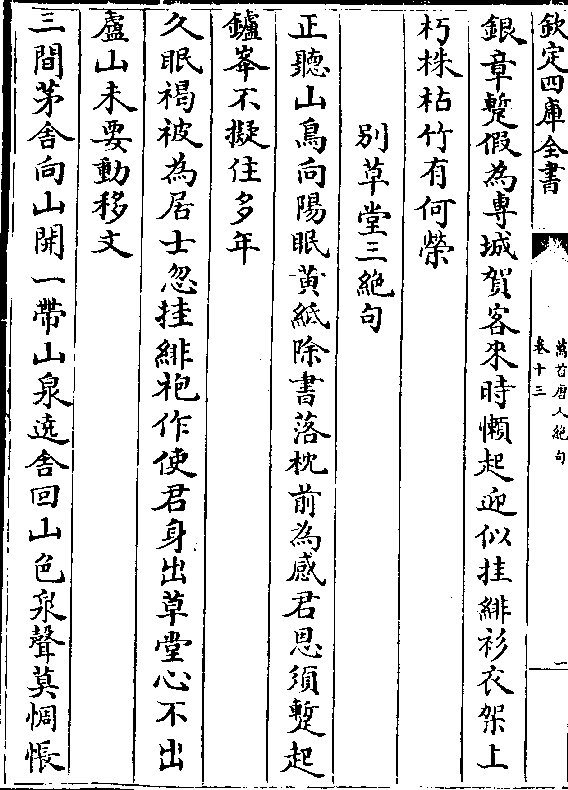 欽定四庫全書
萬首唐人絶句
卷十三
一
銀章蹔假為專城賀客來時懶起迎似挂緋衫衣架上
朽株枯竹有何榮
别草堂三絶句
正聽山鳥向陽眠黄紙除書落枕前為感君恩須蹔起
鑪峯不擬住多年
久眠褐被為居士忽挂緋袍作使君身出草堂心不出
廬山未要動移文
三間茅舍向山開一帶山泉遶舍回山色泉聲莫惆悵